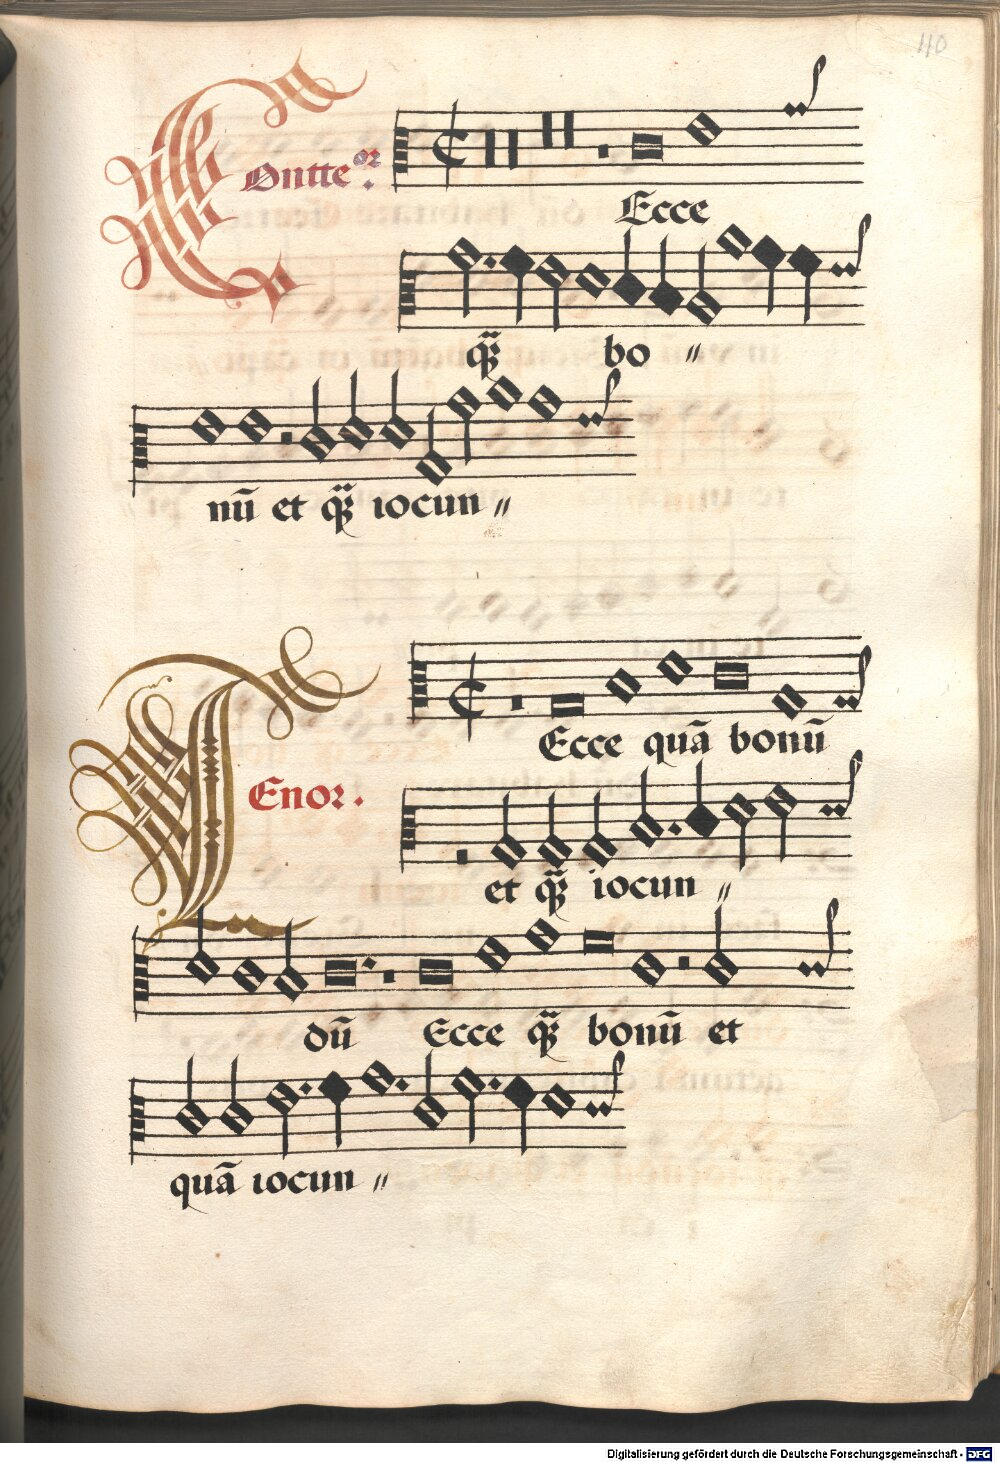 40
Contteor.
Ecce
q̃ʒ bo〃
nū et q̃ʒ iocun〃
Tenor.
Ecce quā bonū
et q̃ʒ iocun〃
dū Ecce q̃ʒ bonū et
quā iocun〃
Digitalisierung gefördert durch die Deutsche Forschungsgemeinschaft - DFG